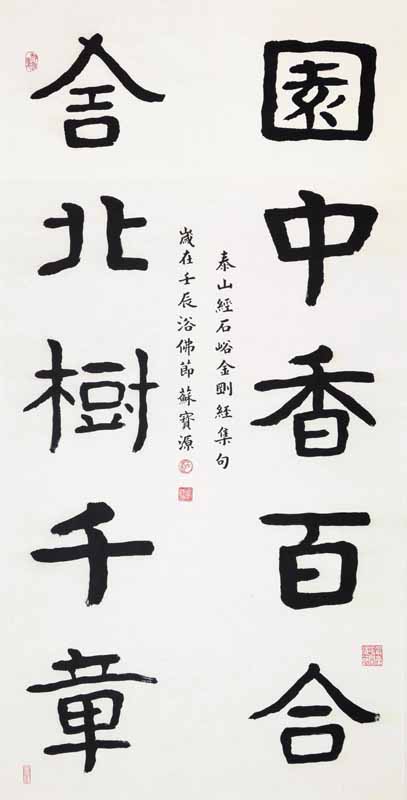 園中香百合
舍北樹千章
泰山經石峪金剛經集句
歲在壬辰浴佛節蘇寶源